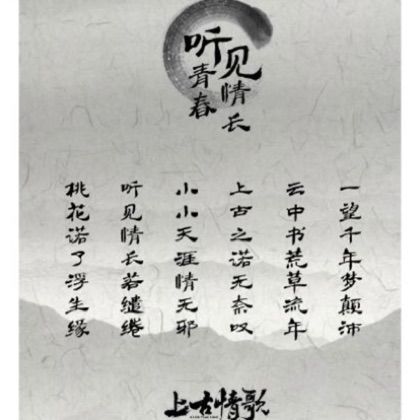 听见青春
情长
一望千年梦颠沛
云中书荒草流年
上古之诺无奈叹
小小天涯情无邪
听见情长若缱绻
桃花诺了浮生缘
上古情歌